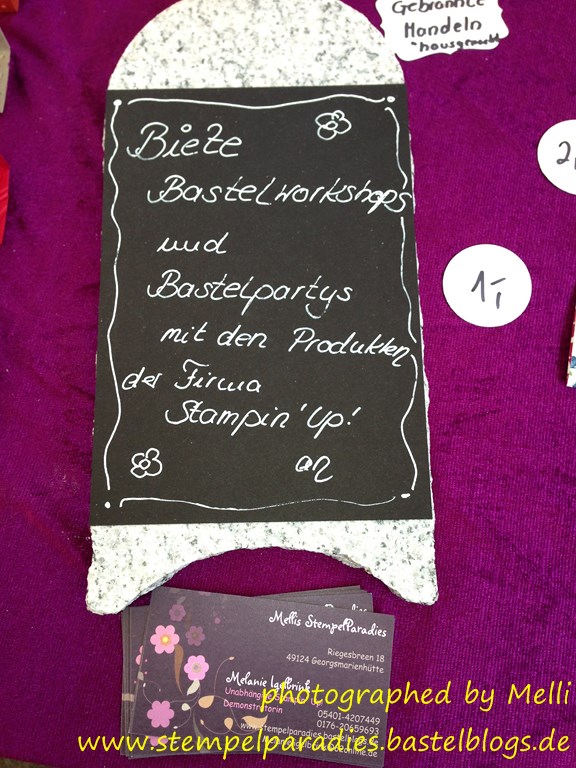 Gebrannte
Mandeln
hausgemacht
Biete
Bastelworkshops
und
Bastelpartys
mit den Produkten
der Firma
Stampin' Up!
an
2,
1,-
Mellis StempelParadies
Riegesbreen 18
49124 Georgsmarienhütte
Melanie
Unabhängige Stampin' Up
Demonstratorin
05401-4207449
0176-20659693
photographed by Melli
www.stempelparadies.bastelblogs.de